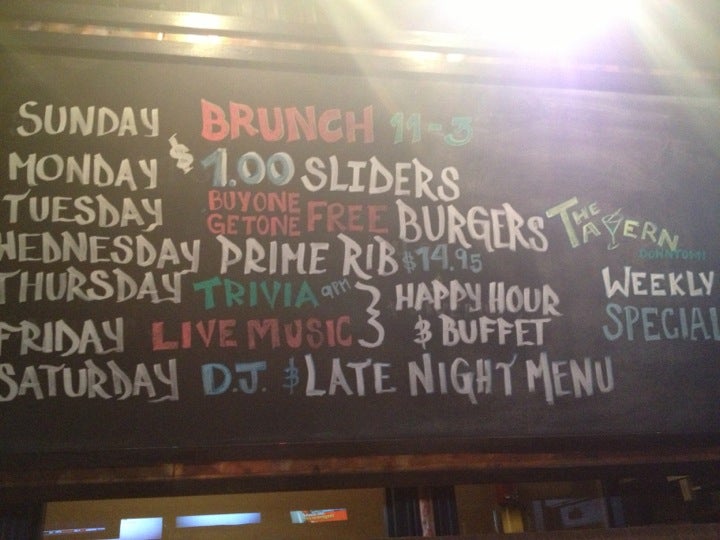 SUNDAY BRUNCH 11-3
MONDAY $1.00 SLIDERS
TUESDAY BUY ONE GET ONE FREE BURGERS
WEDNESDAY PRIME RIB $14.95
THURSDAY TRIVIA 9PM
FRIDAY LIVE MUSIC
HAPPY HOUR
& BUFFET
SATURDAY D.J. & LATE NIGHT MENU
THE
TAVERN
DOWNTOWN
WEEKLY
SPECIAL